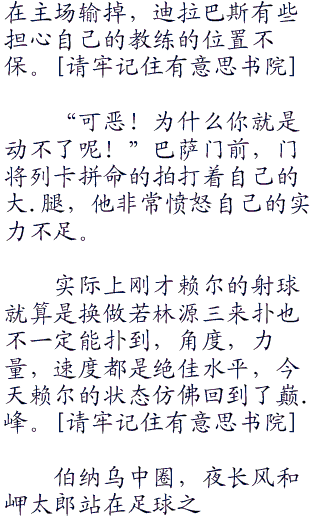 在主场输掉，迪拉巴斯有些
担心自己的教练的位置不
保。[请牢记住有意思书院]
“可恶！为什么你就是
动不了呢！”巴萨门前，门
将列卡拼命的拍打着自己的
大.腿，他非常愤怒自己的实
力不足。
实际上刚才赖尔的射球
就算是换做若林源三来扑也
不一定能扑到，角度，力
量，速度都是绝佳水平，今
天赖尔的状态仿佛回到了巅.
峰。[请牢记住有意思书院]
伯纳乌中圈，夜长风和
岬太郎站在足球之